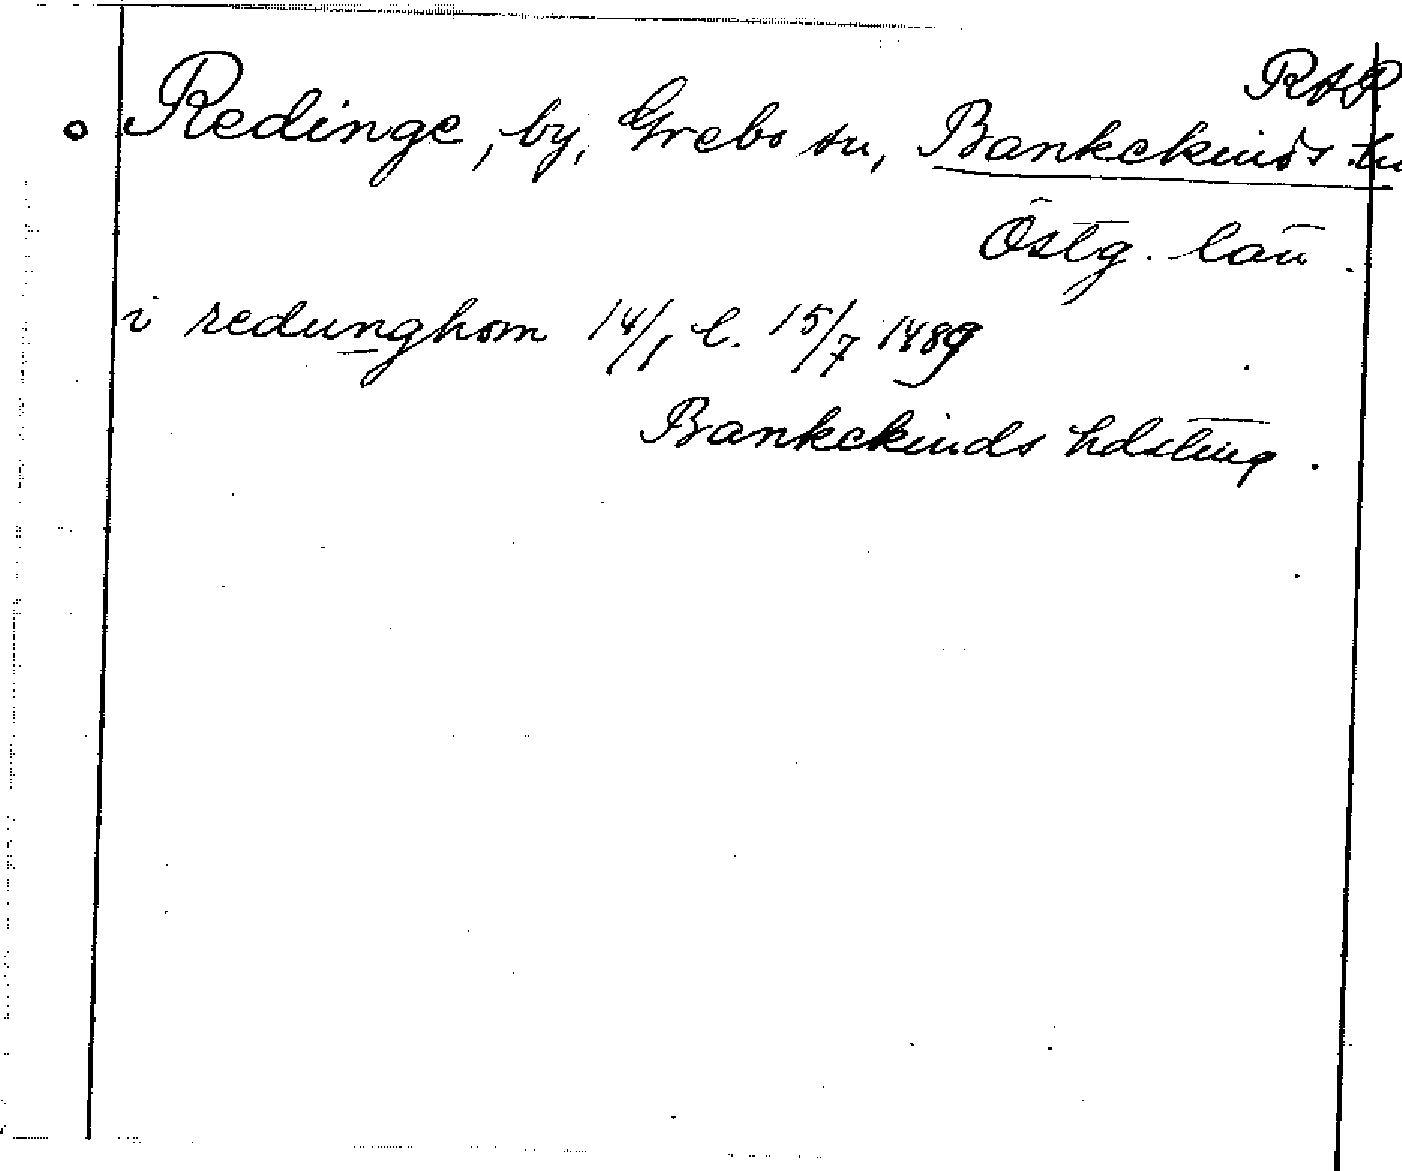 RAP
Redinge, by, Grebo sn, Bankekinds hd
Östg. län.
i redunghom 14/1 l. 15/7 1489
Bankekinds hdsting.